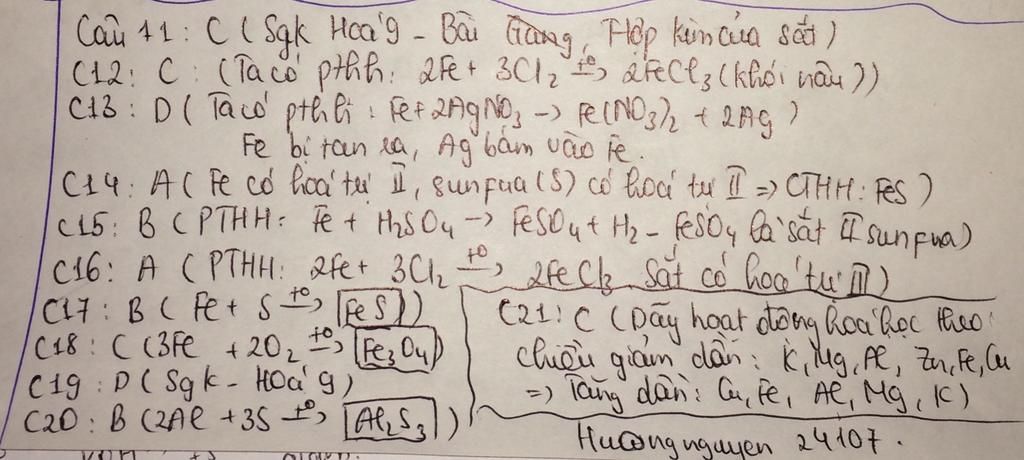 Câu 11: C (Sgk Hoá 9 - Bài Gang, Hợp kim của sắt)
C12: C: (Ta có pthh: 2Fe + 3Cl2 t°→ 2FeCl3 (khói nâu))
C13: D (Ta có pthh: Fe + 2AgNO3 → Fe(NO3)2 + 2Ag)
Fe bị tan ra, Ag bám vào Fe.
C14: A (Fe có hoá trị II, sunfua (S) có hoá trị II => CTHH: FeS)
C15: B (PTHH: Fe + H2SO4 → FeSO4 + H2 - FeSO4 là sắt II sunfua)
C16: A (PTHH: 2Fe + 3Cl2 t°→ 2FeCl3 Sắt có hoá trị III)
C17: B (Fe + S t°→ FeS)
C18: C (3Fe + 2O2 t°→ Fe3O4)
C19: D (Sgk - Hoá 9)
C20: B (2Al + 3S t°→ Al2S3)
C21: C (Dãy hoạt động hoá học theo
chiều giảm dần: K, Mg, Al, Zn, Fe, Cu
=> Tăng dần: Cu, Fe, Al, Mg, K)
Huongnguyen 24107.